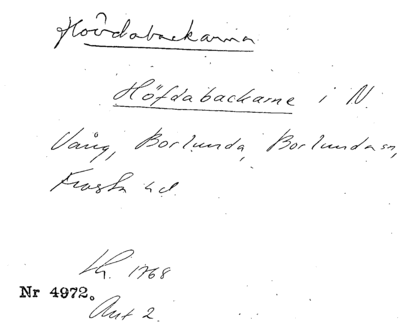 Hovdabackarna
Höfdabackarne i N.
Vång, Borlunda, Borlunda sn,
Frosta hd.
Lh. 1768
Nr 4972.
Akt 2.